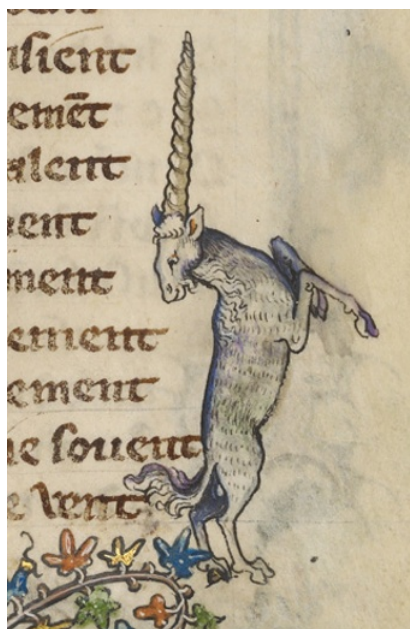 isient
emēt
alent
ent
ment
ement
ement
ne souent
e vent